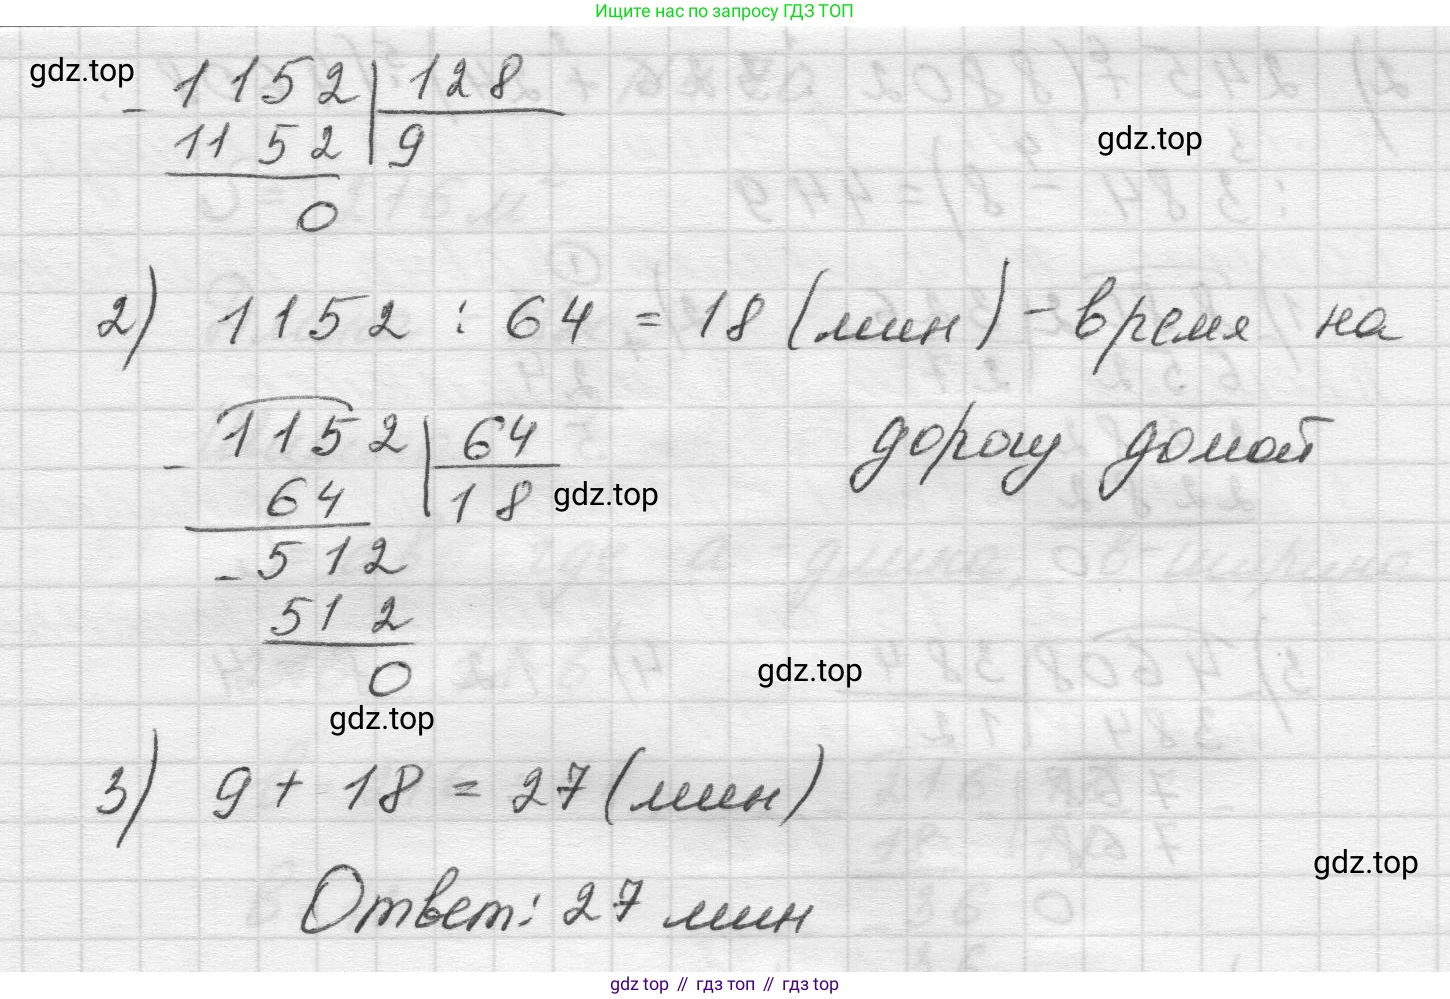 Ищите нас по запросу ГДЗ ТОП
gdz.top
- 1152 | 128
1152 | 9
gdz.top
0
2) 1152 : 64 = 18 (мин) - время на
дорогу домой
- 1152 | 64
64 | 18
gdz.top
- 512
512
0
gdz.top
gdz.top
3) 9 + 18 = 27 (мин)
gdz.top
Ответ: 27 мин
gdz top // гдз топ // гдз top